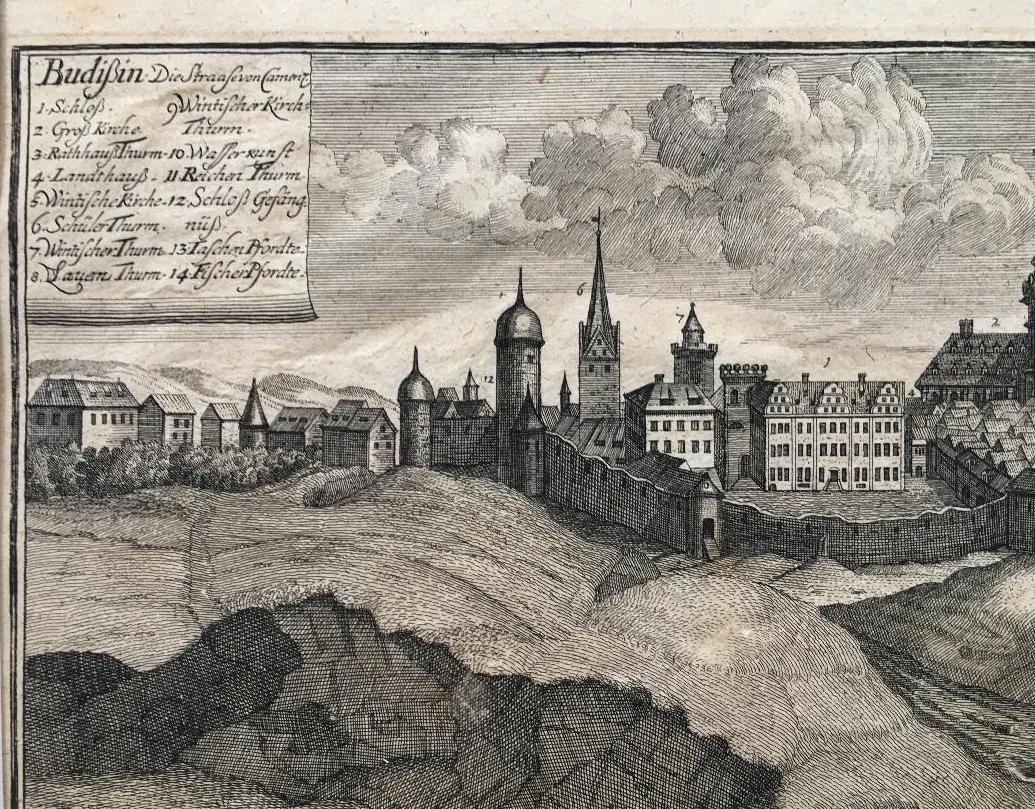 Budißin. Die Straase von Camenz
1. Schloß. 9 Wintischer Kirch
2. Groß Kirche Thurn.
3. RathhaußThurm. 10 Wasser kunst
4. Landthauß. 11 Reichen Thurm
5. Wintische Kirche. 12 Schloß Gefäng
6. Schüler Thurm. nüß.
7. Wintischer Thurm. 13 Taschen Pfordte.
8. Layern Thurm. 14 Fischer Pfordte.
1
6
7
12
1
2
4